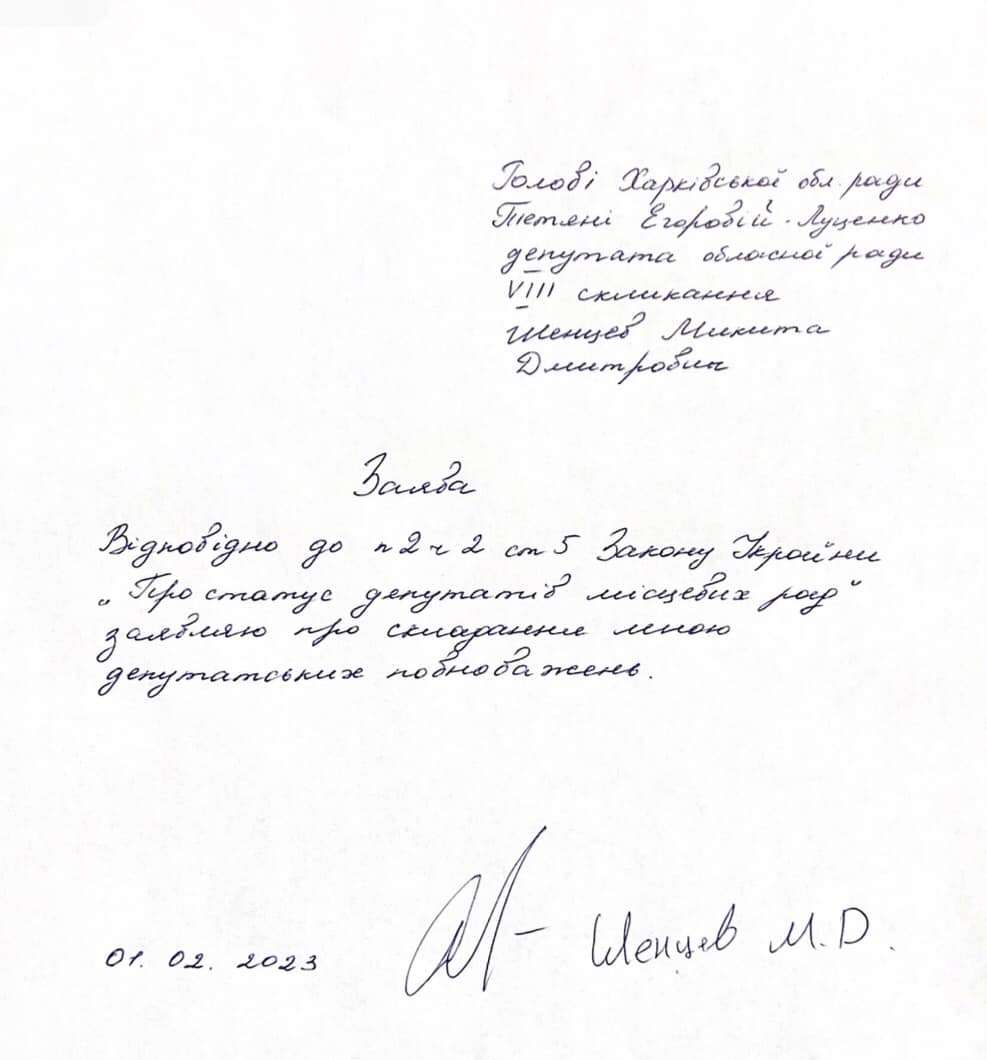 Голові Харківської обл. ради
Тетяні Єгоровій-Луценко
депутата обласної ради
VIII скликання
Шенцев Микита
Дмитрович
Заява
Відповідно до п 2 ч 2 ст 5 Закону Україйни
„Про статус депутатів місцевих рад"
заявляю про складання мною
депутатських повноважень.
01. 02. 2023 Шенцев М.D.